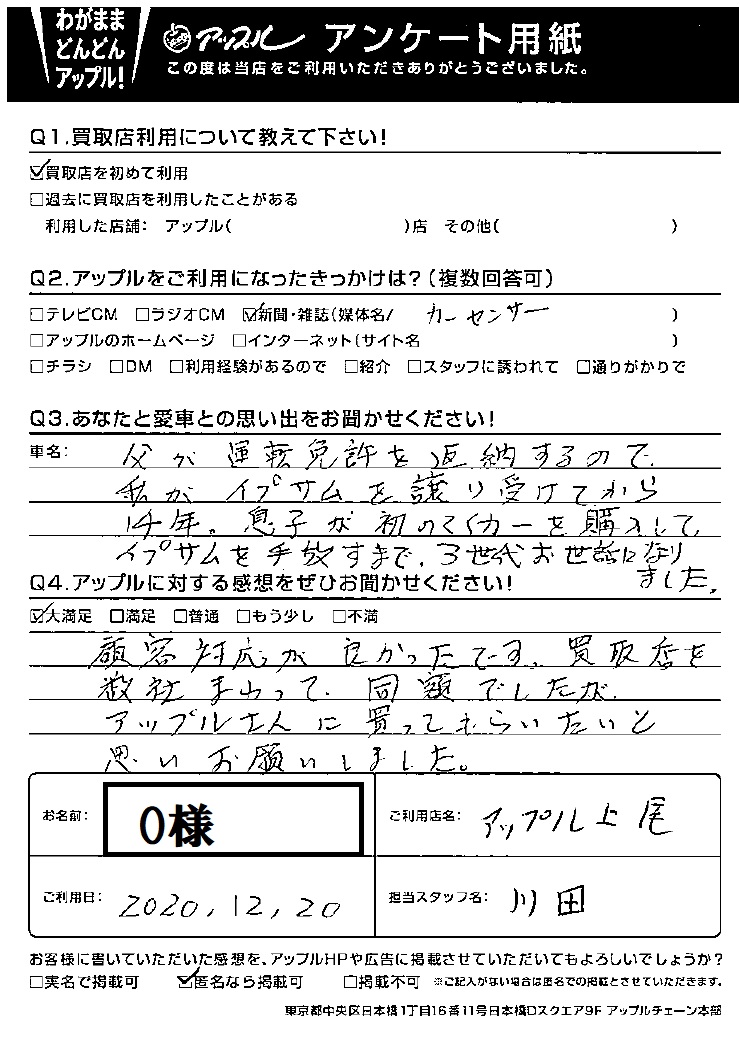 わがまま
どんどん
アップル!
アップル アンケート用紙
この度は当店をご利用いただきありがとうございました。
Q1.買取店利用について教えて下さい!
☑買取店を初めて利用
□過去に買取店を利用したことがある
利用した店舗: アップル( )店 その他( )
Q2.アップルをご利用になったきっかけは?(複数回答可)
□テレビCM □ラジオCM ☑新聞・雑誌(媒体名/ カーセンサー )
□アップルのホームページ □インターネット(サイト名 )
□チラシ □DM □利用経験があるので □紹介 □スタッフに誘われて □通りがかりで
Q3.あなたと愛車との思い出をお聞かせください!
車名: 父が運転免許を返納するので、
私がイプサムを譲り受けてから
14年。息子が初めてマイカーを購入して、
イプサムを手放すまで、3世代お世話になり
ました。
Q4.アップルに対する感想をぜひお聞かせください!
☑大満足 □満足 □普通 □もう少し □不満
顧客対応が良かったです。買取店を
数社まわって、同額でしたが、
アップルさんに買ってもらいたいと
思いお願いしました。
お名前: O様
ご利用店名: アップル上尾
ご利用日: 2020,12,20
担当スタッフ名: 川田
お客様に書いていただいた感想を、アップルHPや広告に掲載させていただいてもよろしいでしょうか?
□実名で掲載可 ☑匿名なら掲載可 □掲載不可 ※ご記入がない場合は匿名での掲載とさせていただきます。
東京都中央区日本橋1丁目16番11号日本橋Dスクエア9F アップルチェーン本部